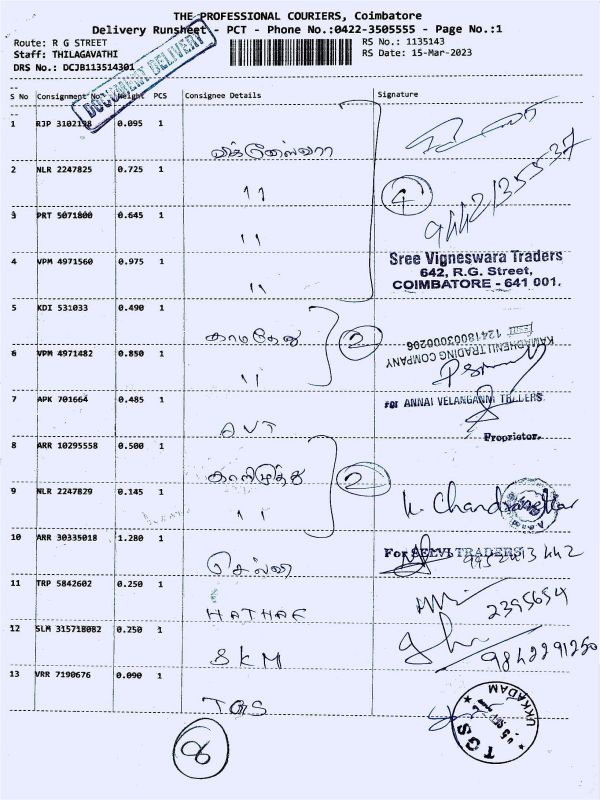 THE PROFESSIONAL COURIERS, Coimbatore
Delivery Runsheet - PCT - Phone No.:0422-3505555 - Page No.:1
Route: R G STREET
RS No.: 1135143
Staff: THILAGAVATHI
RS Date: 15-Mar-2023
DRS No.: DCJB113514301
DOCUMENT DELIVERY
S No Consignment No. Weight PCS Consignee Details Signature
1 RJP 3102198 0.095 1
விக்னேஸ்வரா
2 NLR 2247825 0.725 1
11
4
9442135537
3 PRT 5071800 0.645 1
11
Sree Vigneswara Traders
642, R.G. Street,
COIMBATORE - 641 001.
4 VPM 4971560 0.975 1
11
5 KDI 531033 0.490 1
காமதேனு
2
12418003000206
KAMADHENU TRADING COMPANY
6 VPM 4971482 0.850 1
11
7 APK 701664 0.485 1
For ANNAI VELANGANNI TRADERS
AVT
Proprietor.
8 ARR 10295558 0.500 1
காளிமுத்து
2
9 NLR 2247829 0.145 1
11
K. Chandrasekar
10 ARR 30335018 1.280 1
For SELVI TRADERS
செல்வி
11 TRP 5842602 0.250 1
2395654
12 SLM 315718082 0.250 1
SKM
9842291250
13 VRR 7190676 0.090 1
TGS
TGS
UKKADAM
8